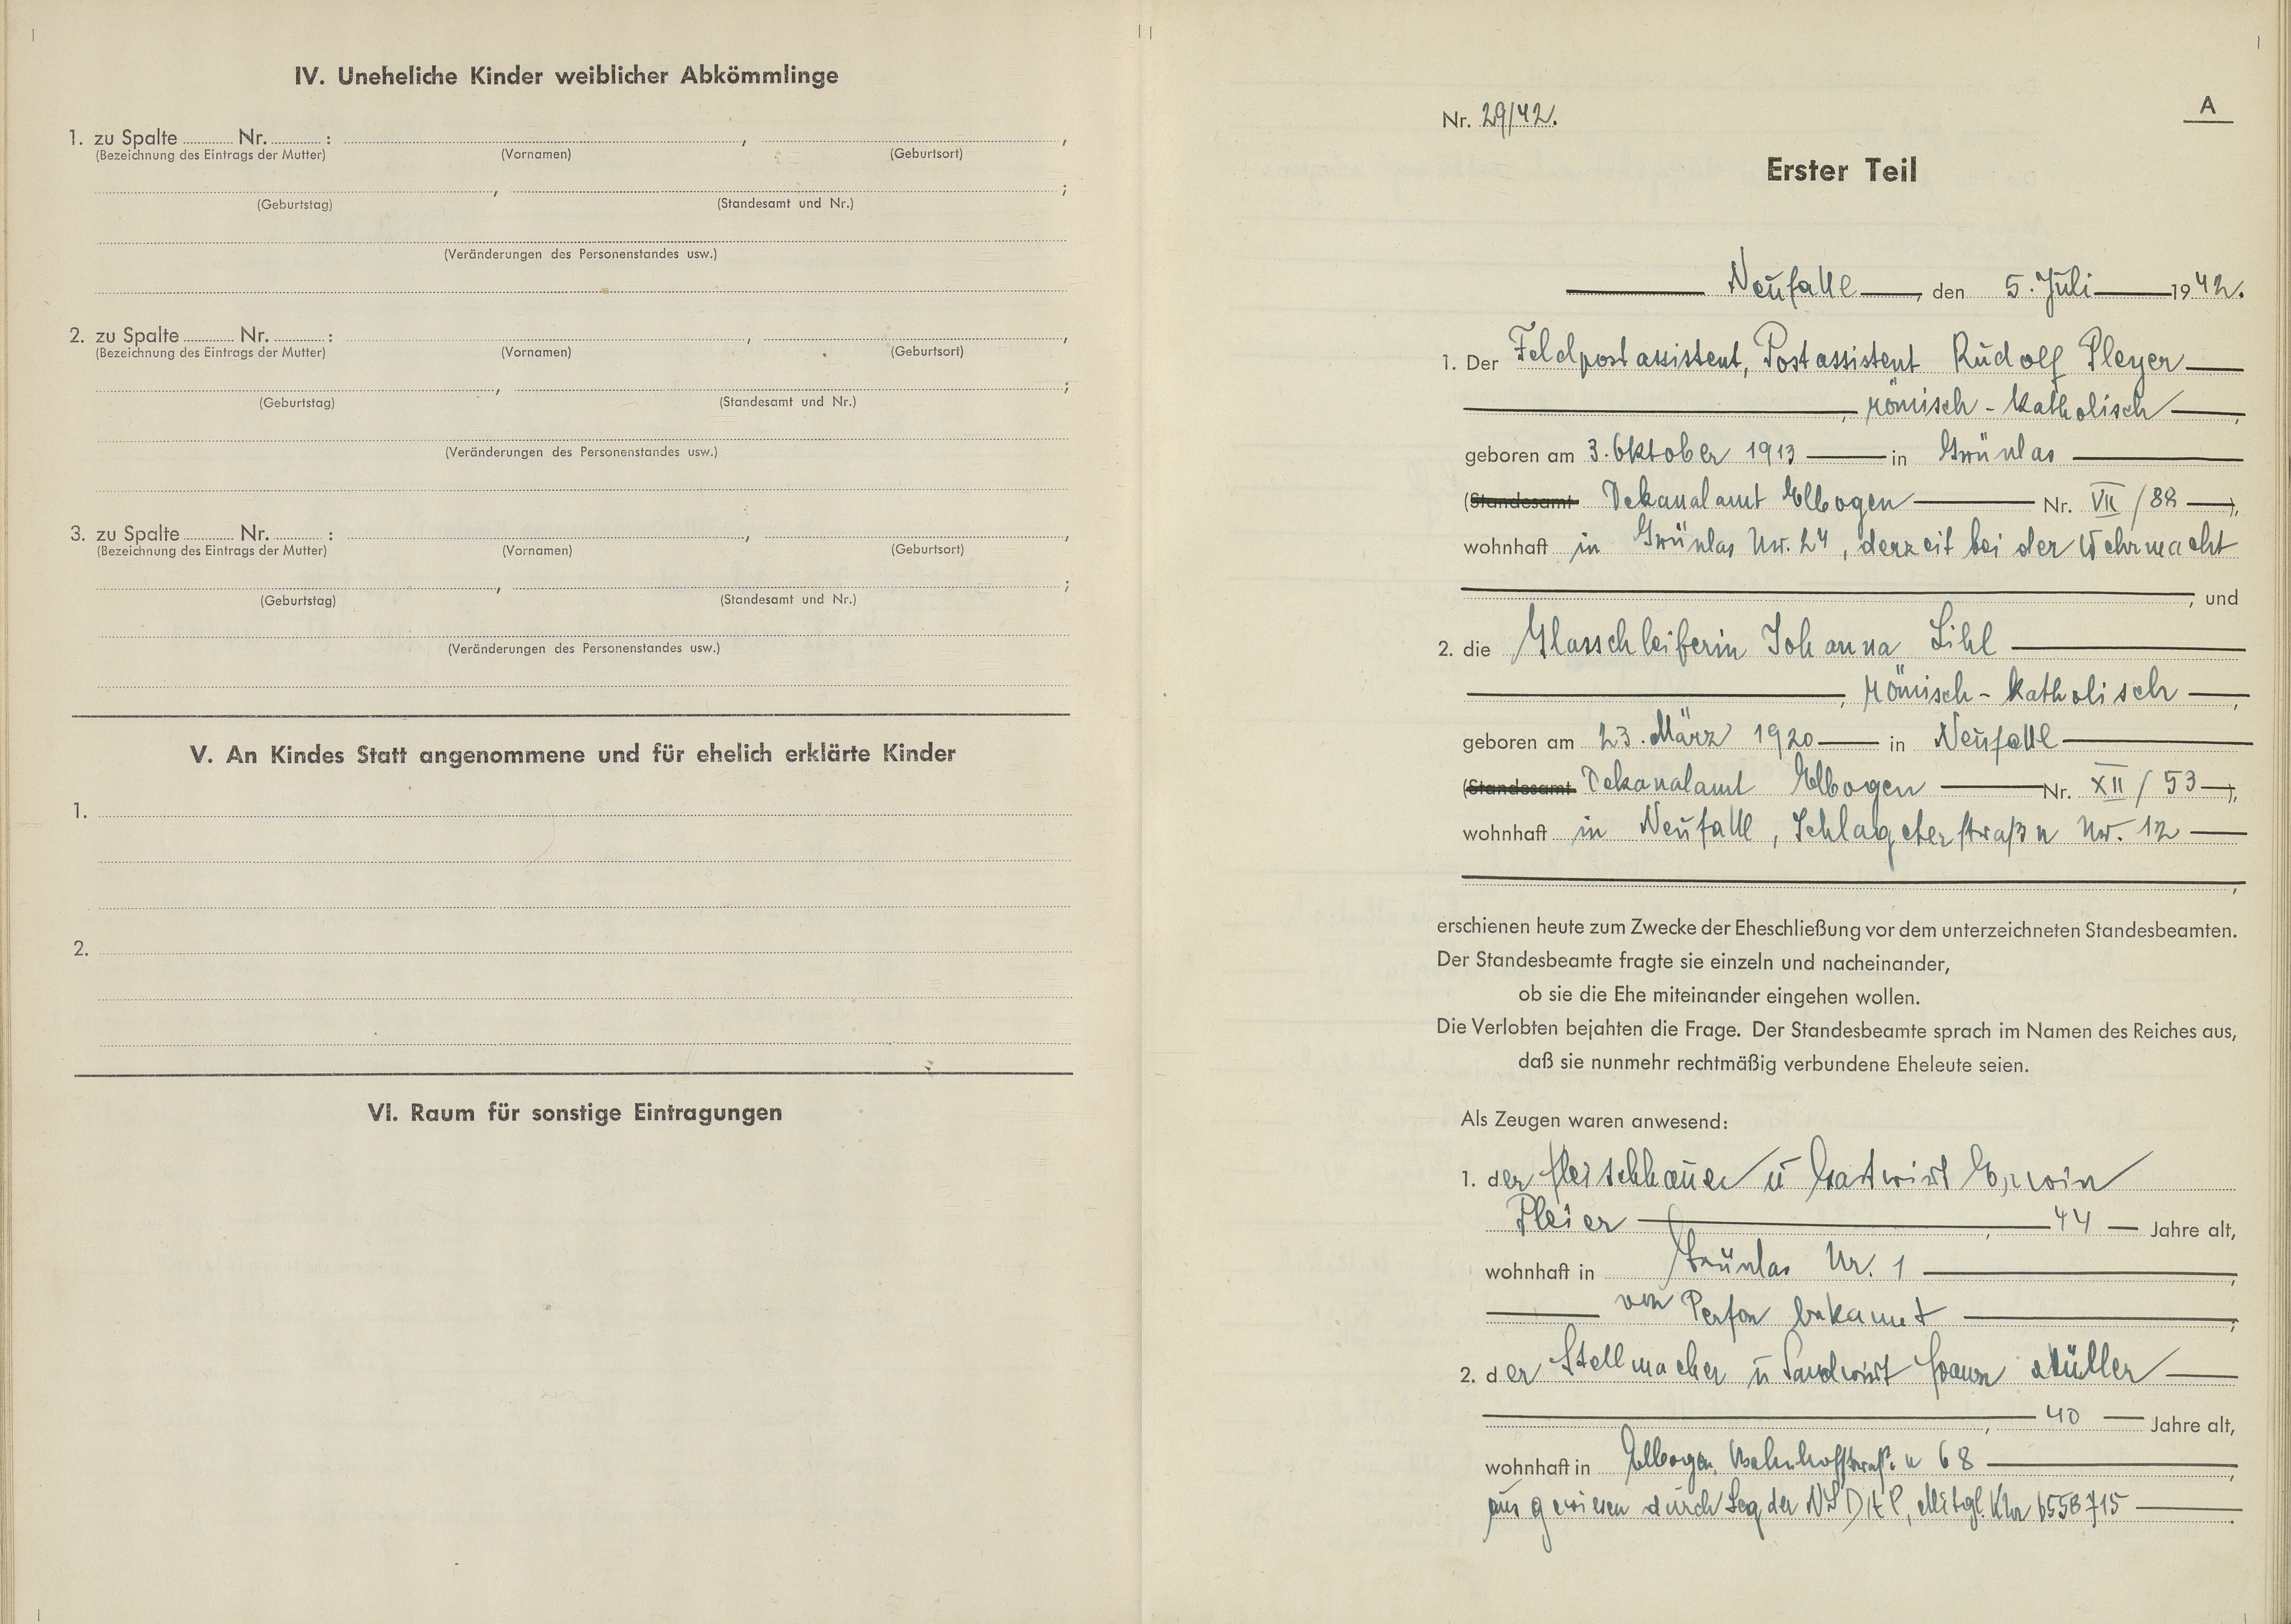 IV. Uneheliche Kinder weiblicher Abkömmlinge
1. zu Spalte ........ Nr. ........ : , ,
(Bezeichnung des Eintrags der Mutter) (Vornamen) (Geburtsort)
, ;
(Geburtstag) (Standesamt und Nr.)
(Veränderungen des Personenstandes usw.)
2. zu Spalte ........ Nr. ........ : , ,
(Bezeichnung des Eintrags der Mutter) (Vornamen) (Geburtsort)
, ;
(Geburtstag) (Standesamt und Nr.)
(Veränderungen des Personenstandes usw.)
3. zu Spalte ........ Nr. ........ : , ,
(Bezeichnung des Eintrags der Mutter) (Vornamen) (Geburtsort)
, ;
(Geburtstag) (Standesamt und Nr.)
(Veränderungen des Personenstandes usw.)
V. An Kindes Statt angenommene und für ehelich erklärte Kinder
1.
2.
VI. Raum für sonstige Eintragungen
A
Nr. 29/42.
Erster Teil
Neufattl, den 5. Juli 1942.
1. Der Feldpostassistent, Postassistent Rudolf Pleyer
, römisch-katholisch,
geboren am 3. Oktober 1913 in Grünlas
(Standesamt Dekanalamt Elbogen Nr. VII/88),
wohnhaft in Grünlas Nr. 24, derzeit bei der Wehrmacht
, und
2. die Glasschleiferin Johanna Lihl
, römisch-katholisch,
geboren am 23. März 1920 in Neufattl
(Standesamt Dekanalamt Elbogen Nr. XII/53),
wohnhaft in Neufattl, Schlageterstraße Nr. 12
,
erschienen heute zum Zwecke der Eheschließung vor dem unterzeichneten Standesbeamten.
Der Standesbeamte fragte sie einzeln und nacheinander,
ob sie die Ehe miteinander eingehen wollen.
Die Verlobten bejahten die Frage. Der Standesbeamte sprach im Namen des Reiches aus,
daß sie nunmehr rechtmäßig verbundene Eheleute seien.
Als Zeugen waren anwesend:
1. der Fleischhauer u Gastwirt Erwin
Pleier, 44 Jahre alt,
wohnhaft in Grünlas Nr. 1,
von Person bekannt;
2. der Stellmacher u Landwirt Franz Müller
, 40 Jahre alt,
wohnhaft in Elbogen, Bahnhofstraße 68,
ausgewiesen durch Leg der NSDAP, Mitgl. 6558715.